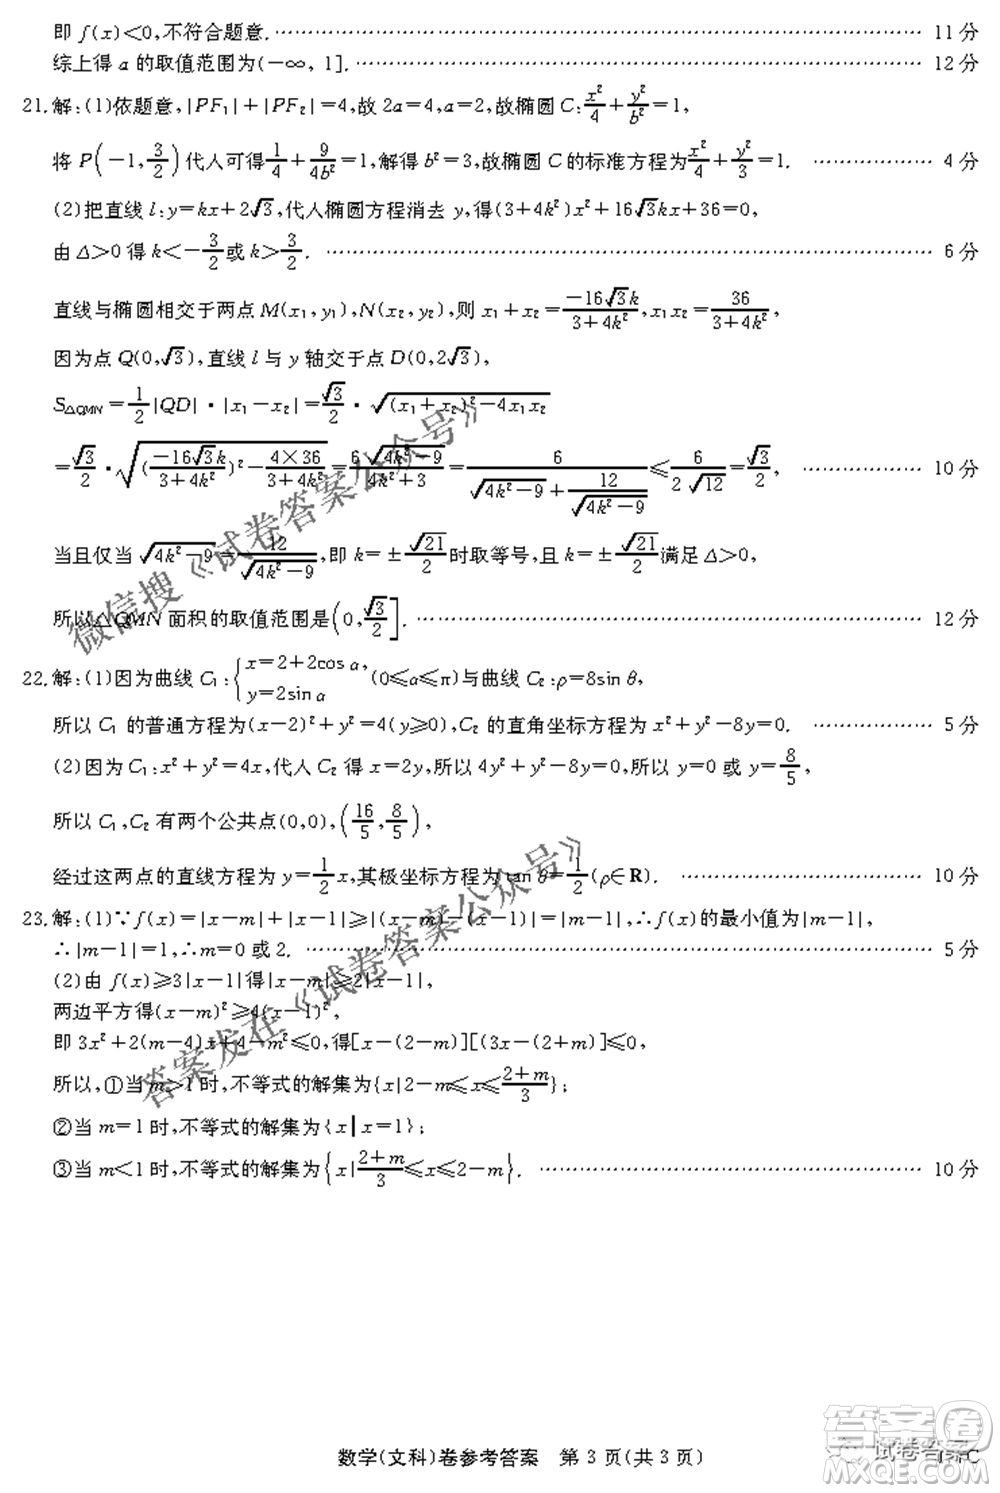 即 f(x)<0,不符合题意. 11 分
综上得 a 的取值范围为(-∞, 1]. 12 分
21.解:(1)依题意,|PF₁|+|PF₂|=4,故 2a=4,a=2,故椭圆 C:x²/4+y²/b²=1,
将 P(-1,3/2)代人可得1/4+9/4b²=1,解得 b²=3,故椭圆 C 的标准方程为x²/4+y²/3=1. 4 分
(2)把直线 l:y=kx+2√3,代人椭圆方程消去 y,得(3+4k²)x²+16√3kx+36=0,
由 Δ>0 得 k<-3/2或 k>3/2. 6 分
直线与椭圆相交于两点 M(x₁,y₁),N(x₂,y₂),则 x₁+x₂=-16√3k/(3+4k²),x₁x₂=36/(3+4k²),
因为点 Q(0,√3),直线 l 与 y 轴交于点 D(0,2√3),
S△QMN=1/2|QD|·|x₁-x₂|=√3/2·√((x₁+x₂)²-4x₁x₂)
=√3/2·√((-16√3k/(3+4k²))²-4×36/(3+4k²))=6√(4k²-9)/(4k²+3)=6/(√(4k²-9)+12/√(4k²-9))≤6/(2√12)=√3/2, 10 分
当且仅当 √(4k²-9)=12/√(4k²-9),即 k=±√21/2时取等号,且 k=±√21/2满足 Δ>0,
所以△QMN 面积的取值范围是(0,√3/2]. 12 分
22.解:(1)因为曲线 C₁:{x=2+2cos α, y=2sin α (0≤α≤π)与曲线 C₂:ρ=8sin θ,
所以 C₁ 的普通方程为(x-2)²+y²=4(y≥0),C₂ 的直角坐标方程为 x²+y²-8y=0. 5 分
(2)因为 C₁:x²+y²=4x,代人 C₂ 得 x=2y,所以 4y²+y²-8y=0,所以 y=0 或 y=8/5,
所以 C₁,C₂ 有两个公共点(0,0),(16/5,8/5),
经过这两点的直线方程为 y=1/2x,其极坐标方程为 tan θ=1/2(ρ∈R). 10 分
23.解:(1)∵f(x)=|x-m|+|x-1|≥|(x-m)-(x-1)|=|m-1|,∴f(x)的最小值为|m-1|,
∴|m-1|=1,∴m=0 或 2. 5 分
(2)由 f(x)≥3|x-1|得|x-m|≥2|x-1|,
两边平方得(x-m)²≥4(x-1)²,
即 3x²+2(m-4)x+4-m²≤0,得[x-(2-m)][(3x-(2+m)]≤0,
所以,①当 m>1 时,不等式的解集为{x|2-m≤x≤(2+m)/3};
②当 m=1 时,不等式的解集为{x|x=1};
③当 m<1 时,不等式的解集为{x|(2+m)/3≤x≤2-m}. 10 分
微信搜《试卷答案公众号》
答案发在《试卷答案公众号》
数学(文科)卷参考答案 第 3 页(共 3 页)
试卷答案
答案卷
MXQE.COM